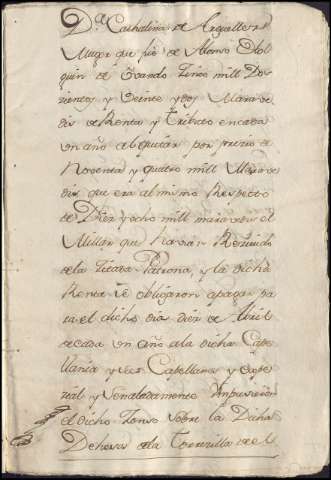 Dª Cathalina de Arguelles
Muger que fue de Alonso Hol
guin de Ovando Cinco mill Dos
zientos y Veinte y dos Marave
dis de Renta y Tributo en cada
un año al quitar por precio de
Noventa y quatro mill Marave
dis que era al mismo Respecto
de Diez y ocho mill maravedis el
Millar que havian Rezivido
de la Patrona, y la dicha
Renta se obligaron apagar pa
ra el dicho dia diez de Abril
de cada un año ala dicha Cape
llania y sus Capellanes y espe
zial y Señaladamente Impusieron
el dicho Zenso sobre la Dicha
Dehesa de la Torrezilla de